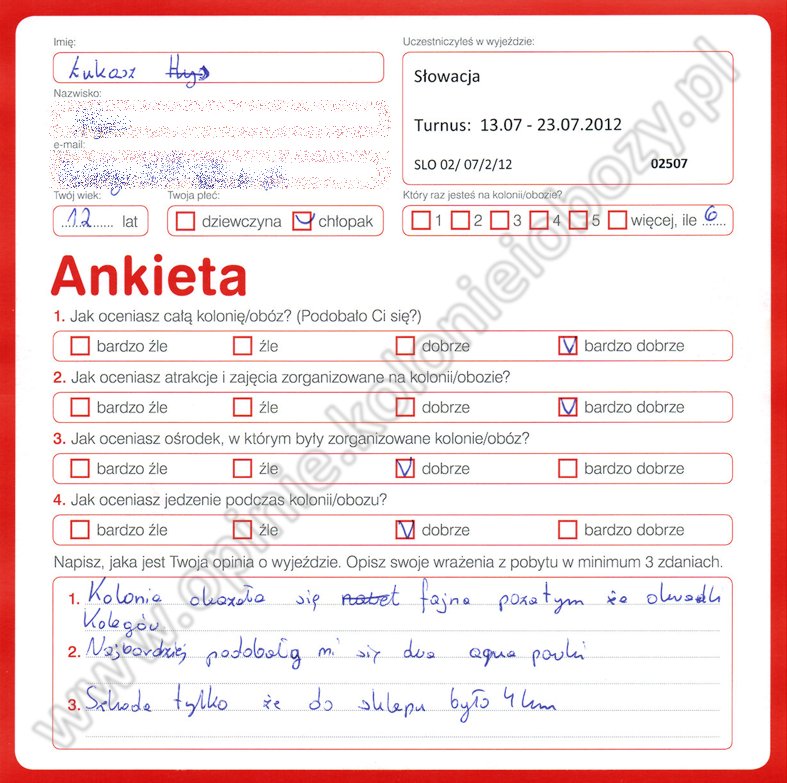 Imię:
Łukasz
Uczestniczyłeś w wyjeździe:
Słowacja
Turnus: 13.07 - 23.07.2012
SLO 02/ 07/2/12 02507
Nazwisko:
e-mail:
Twój wiek:
12 lat
Twoja płeć:
dziewczyna chłopak
Który raz jesteś na kolonii/obozie?
1 2 3 4 5 więcej, ile 6
Ankieta
1. Jak oceniasz całą kolonię/obóz? (Podobało Ci się?)
bardzo źle źle dobrze bardzo dobrze
2. Jak oceniasz atrakcje i zajęcia zorganizowane na kolonii/obozie?
bardzo źle źle dobrze bardzo dobrze
3. Jak oceniasz ośrodek, w którym były zorganizowane kolonie/obóz?
bardzo źle źle dobrze bardzo dobrze
4. Jak oceniasz jedzenie podczas kolonii/obozu?
bardzo źle źle dobrze bardzo dobrze
Napisz, jaka jest Twoja opinia o wyjeździe. Opisz swoje wrażenia z pobytu w minimum 3 zdaniach.
1. Kolonia okazała się fajna pozatym że
Kolegów
2. Najbardziej podobały mi się dwa aqua parki
3. Szkoda tylko że do sklepu było 4 km
www.opinie.kolonieiobozy.pl